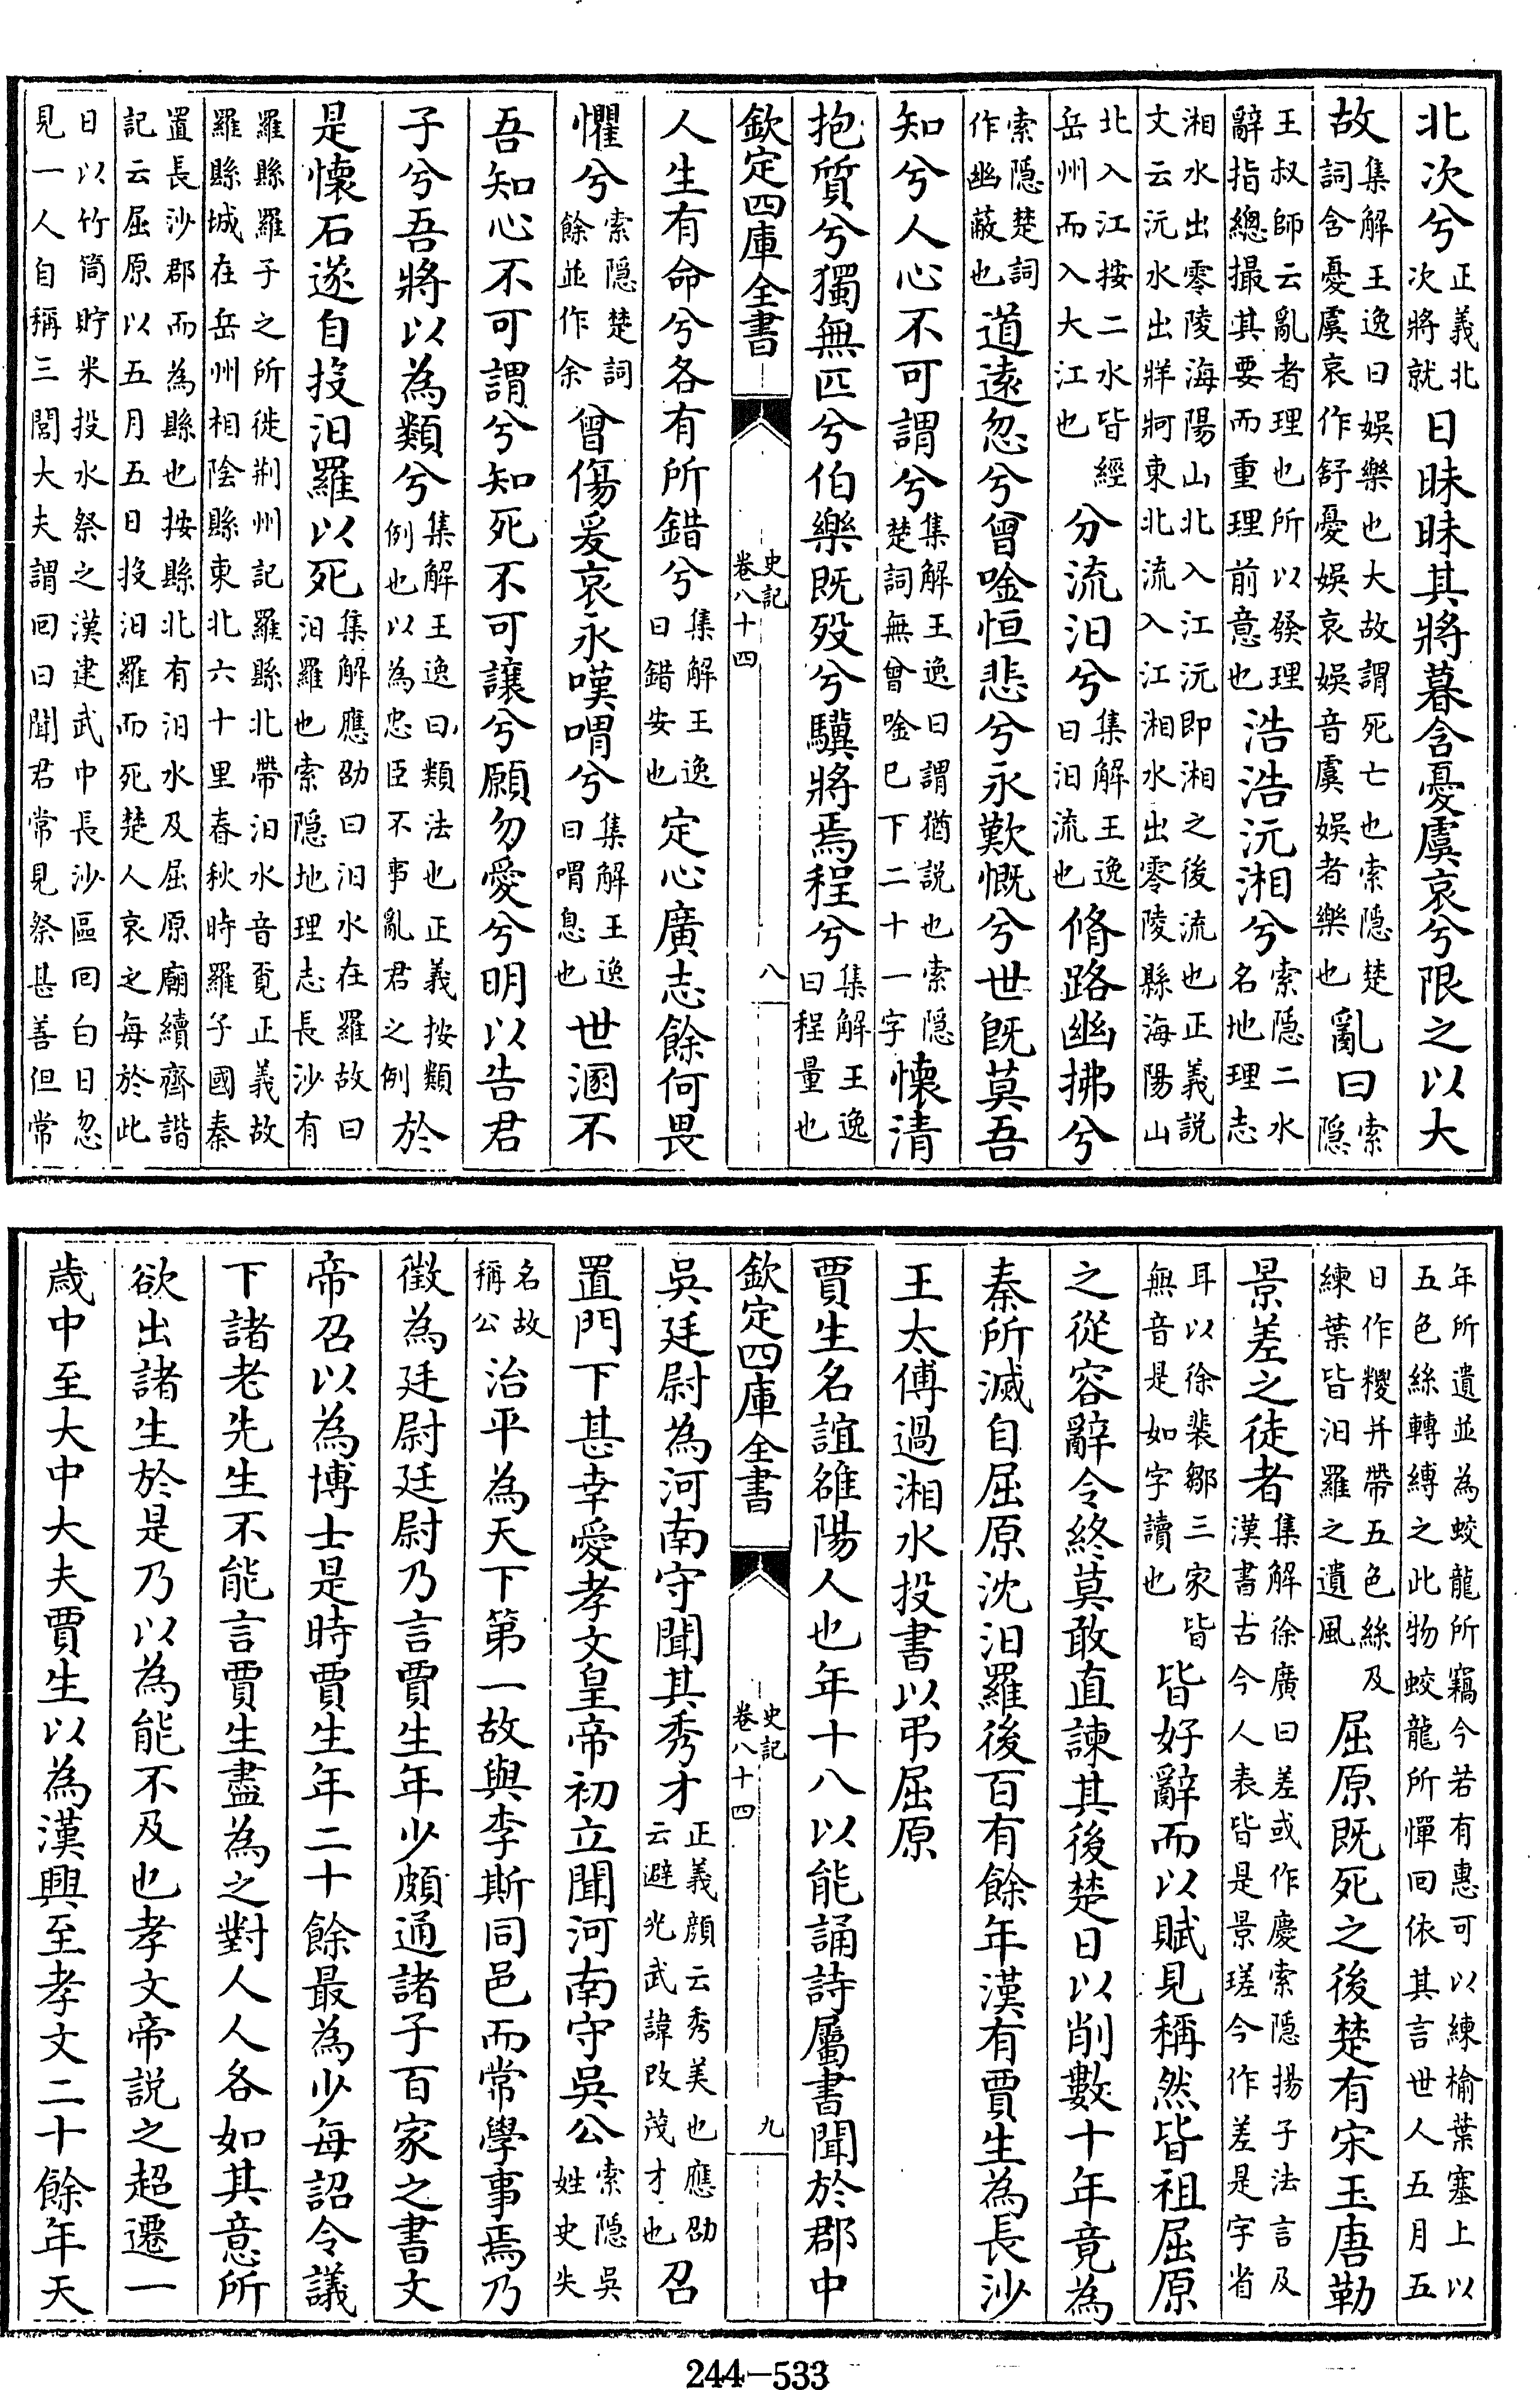 北次兮正義北次將就日昧昧其將暮含憂虞哀兮限之以大
故集解王逸曰娛樂也大故謂死亡也索隠楚詞含憂虞哀作舒憂娛哀娛音虞娛者樂也亂曰索隠
王叔師云亂者理也所以發理辭指總撮其要而重理前意也浩浩沅湘兮索隠二水名地理志
湘水出零陵海陽山北入江沅即湘之後流也正義説文云沅水出牂牁東北流入江湘水出零陵縣海陽山
北入江按二水皆經岳州而入大江也分流汨兮集解王逸曰汨流也脩路幽拂兮
索隠楚詞作幽蔽也道遠忽兮曾唫恒悲兮永歎慨兮世旣莫吾
知兮人心不可謂兮集解王逸曰謂猶説也索隠楚詞無曾唫已下二十一字懷清
抱質兮獨無匹兮伯樂既殁兮驥將焉程兮集解王逸曰程量也
欽定四庫全書 史記卷八十四 八
人生有命兮各有所錯兮集解王逸曰錯安也定心廣志餘何畏
懼兮索隠楚詞餘並作余曾傷爰哀永嘆喟兮集解王逸曰喟息也世溷不
吾知心不可謂兮知死不可讓兮願勿愛兮明以告君
子兮吾將以為類兮集解王逸曰類法也正義按類例也以為忠臣不事亂君之例於
是懷石遂自投汨羅以死集解應劭曰汨水在羅故曰汨羅也索隠地理志長沙有
羅縣羅子之所徙荆州記羅縣北帶汨水音覓正義故羅縣城在岳州相隂縣東北六十里春秋時羅子國秦
置長沙郡而為縣也按縣北有汨水及屈原廟續齊諧記云屈原以五月五日投汨羅而死楚人哀之每於此
日以竹筒貯米投水祭之漢建武中長沙區回白日忽見一人自稱三閭大夫謂回曰聞君常見祭甚善但常
年所遺並為蛟龍所竊今若有惠可以練榆葉塞上以五色絲轉縛之此物蛟龍所憚回依其言世人五月五
日作糉并帶五色絲及練葉皆汨羅之遺風屈原既死之後楚有宋玉唐勒
景差之徒者集解徐廣曰差或作慶索隠揚子法言及漢書古今人表皆是景瑳今作差是字省
耳以徐裴鄒三家皆無音是如字讀也皆好辭而以賦見稱然皆祖屈原
之從容辭令終莫敢直諫其後楚日以削數十年竟為
秦所滅自屈原沈汨羅後百有餘年漢有賈生為長沙
王太傅過湘水投書以弔屈原
賈生名誼雒陽人也年十八以能誦詩屬書聞於郡中
欽定四庫全書 史記卷八十四 九
吳廷尉為河南守聞其秀才正義顔云秀美也應劭云避光武諱改茂才也召
置門下甚幸愛孝文皇帝初立聞河南守吳公索隠吳姓史失
名故稱公治平為天下第一故與李斯同邑而常學事焉乃
徵為廷尉廷尉乃言賈生年少頗通諸子百家之書文
帝召以為博士是時賈生年二十餘最為少每詔令議
下諸老先生不能言賈生盡為之對人人各如其意所
欲出諸生於是乃以為能不及也孝文帝説之超遷一
歳中至大中大夫賈生以為漢興至孝文二十餘年天
244-533